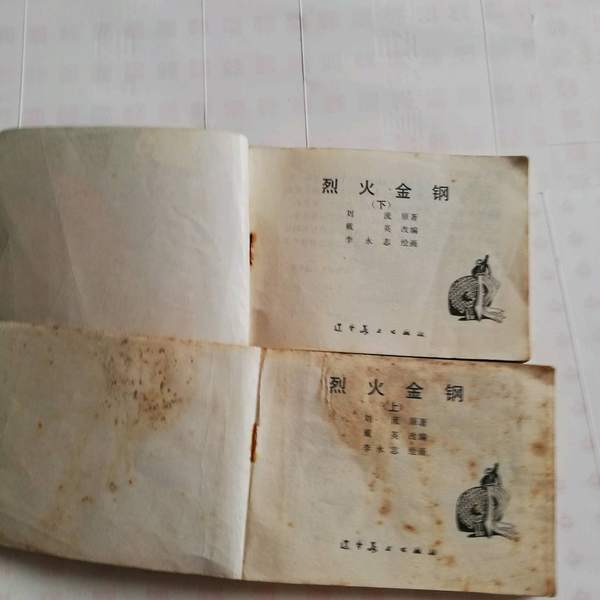 烈火金钢
(下)
刘流 原著
戴英 改编
李永志 绘画
辽宁美术出版社
烈火金钢
(上)
刘流 原著
戴英 改编
李永志 绘画
辽宁美术出版社